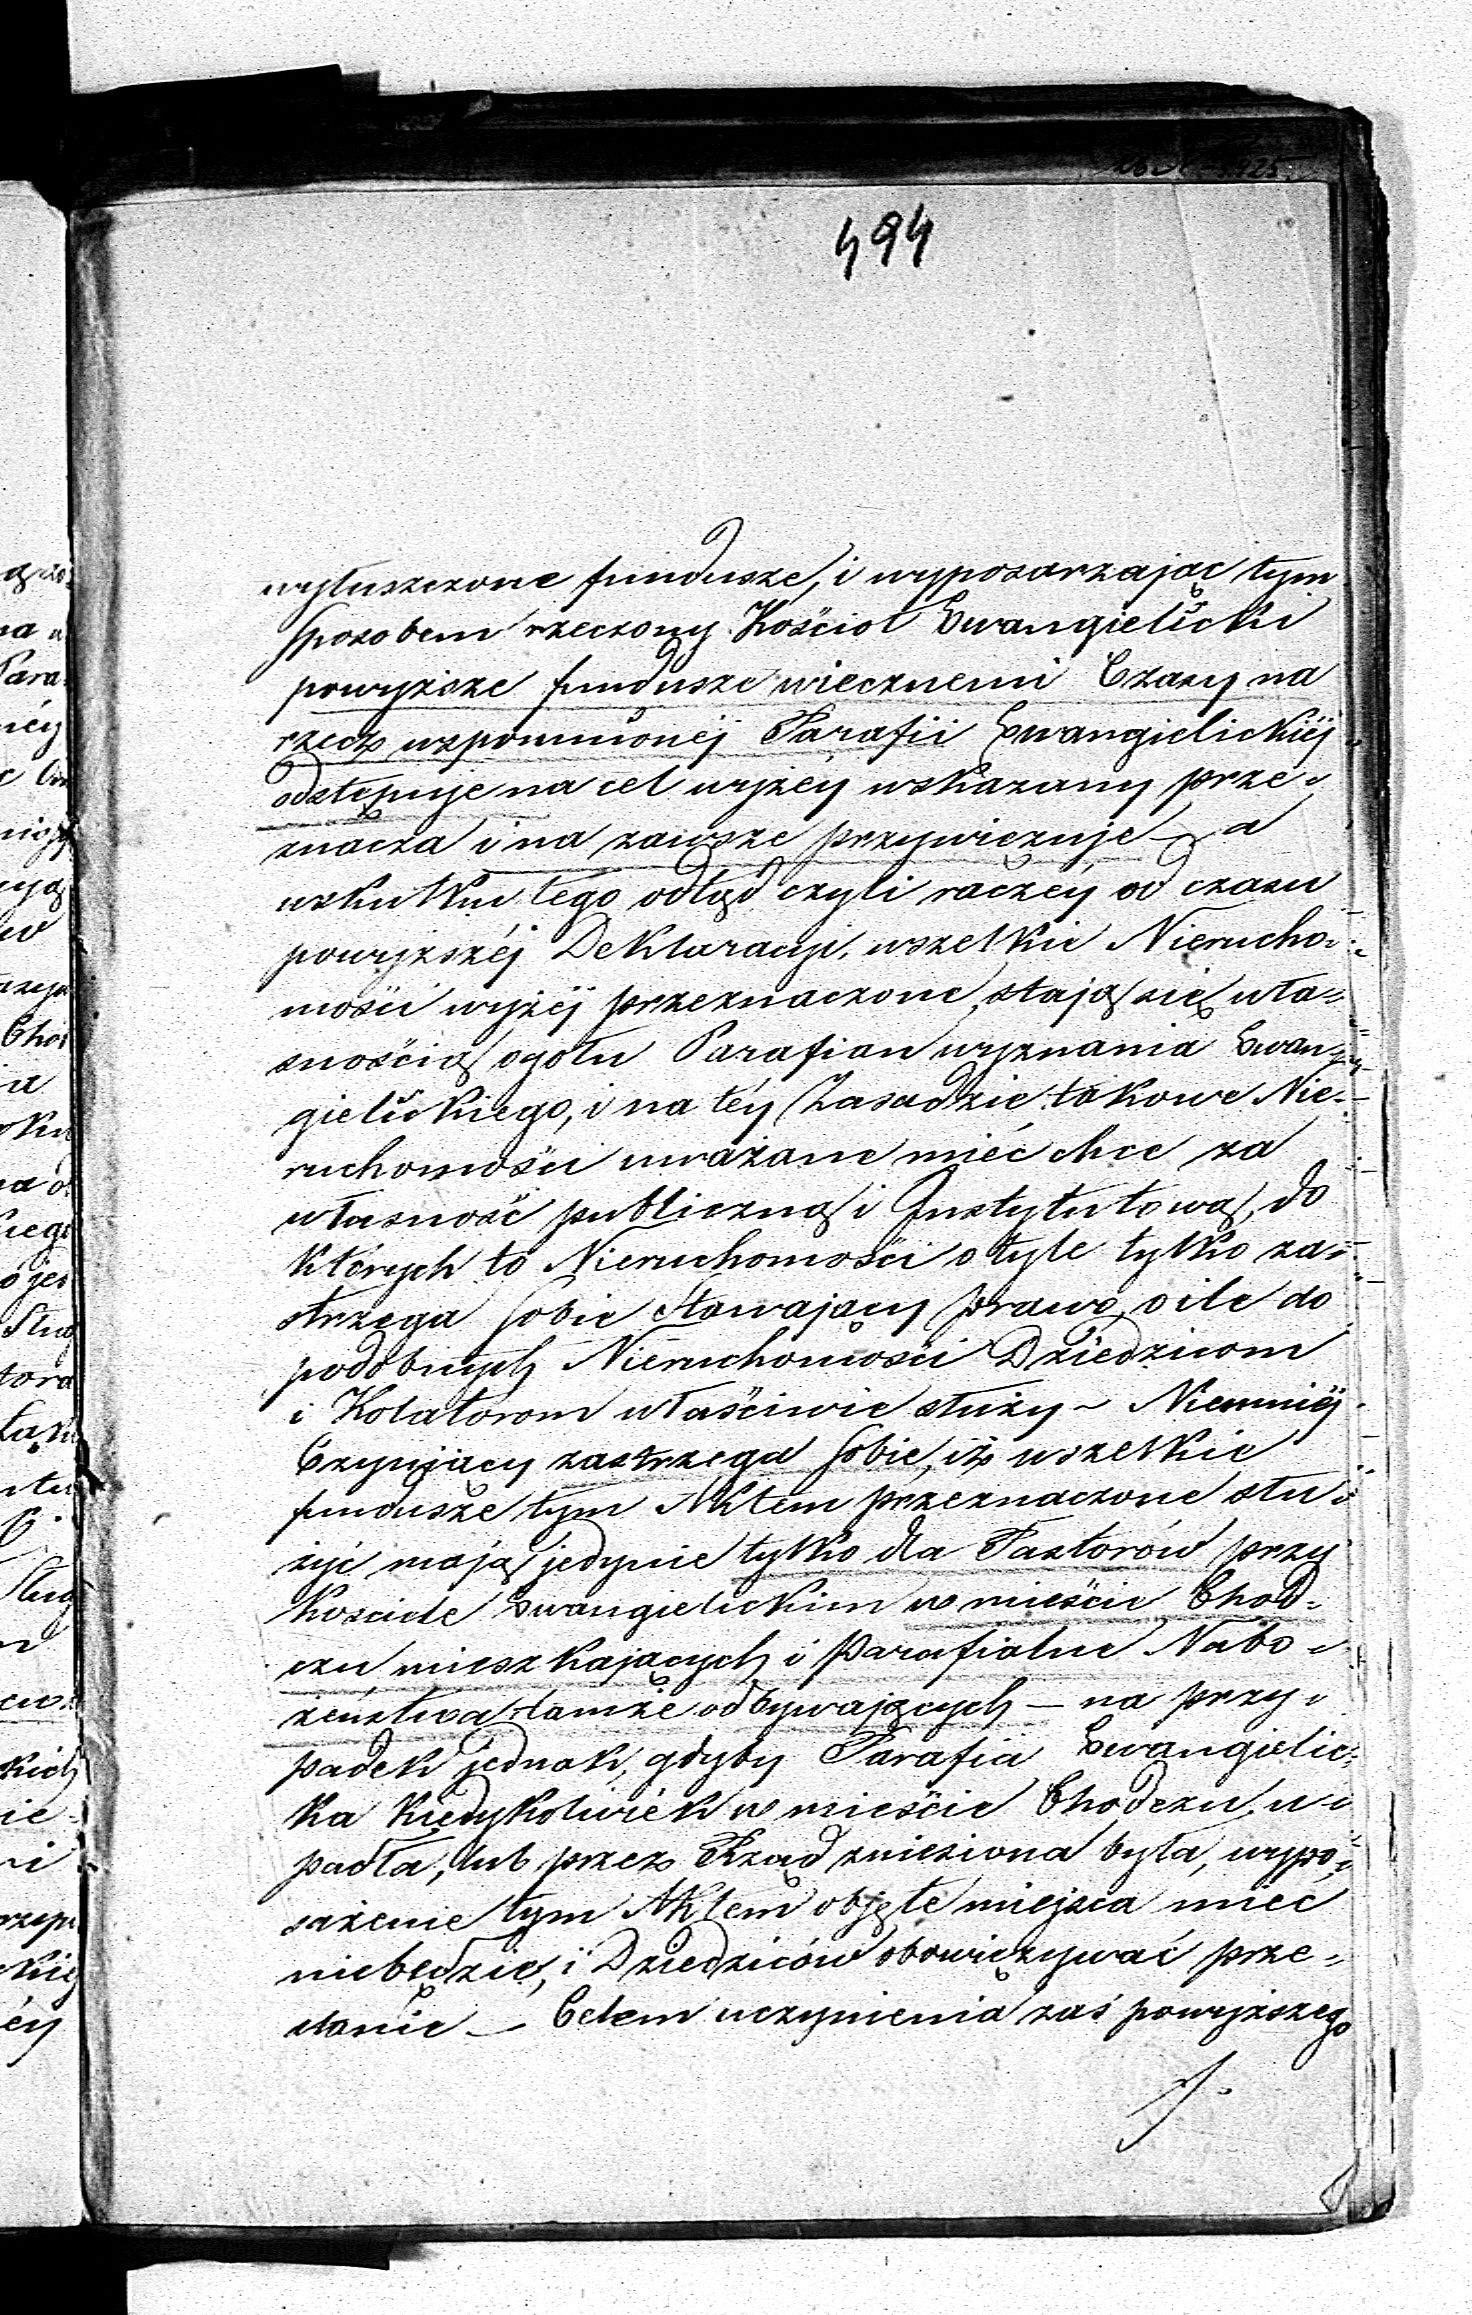 494
wyłuszczone fundusze, i wyposarzając tym
sposobem rzeczony Kościoł Ewangielicki
powyższe fundusze wiecznemi Czasy na
rzecz wspomnionéj Parafii Ewangielickiéj
odstępuje na cel wyżéy wskazany prze-
znacza i na zawsze przywięzuje – a
wskutku tego odtąd czyli raczéy od czasu
powyższéj Deklaracyi, wszelkie Nierucho-
mości wyżéj przeznaczone, stają się wła-
snością ogołu Parafian wyznania Ewan-
gielickiego, i na téy Zasadzie takowe Nie-
ruchomości uważane mieć chce za
własność publiczną i Instytutową, do
których to Nieruchomości o tyle tylko za-
strzega sobie Stawający prawo, o ile do
podobnych Nieruchomości Dziedzicom
i Kolatorom właściwie służy – Niemniéj
Czyniący zastrzega sobie, iż wszelkie
fundusze tym Aktem przeznaczone słu-
żyć mają jedynie tylko dla Pastorów przy
Kosciele Ewangielickim w mieście Chod-
czu mieszkających i Parafialne Nabo-
żeństwa tamże odbywających – na przy-
padek jednak, gdyby Parafia Ewangielic-
ka kiedykolwiek w mieście Chodczu, u-
padła, lub przez Rząd zniesiona była, wypo-
sażenie tym Aktem objęte miejsca mieć
niebędzie, i Dziedziców obowięzywać prze-
stanie – Celem uczynienia zaś powyższego